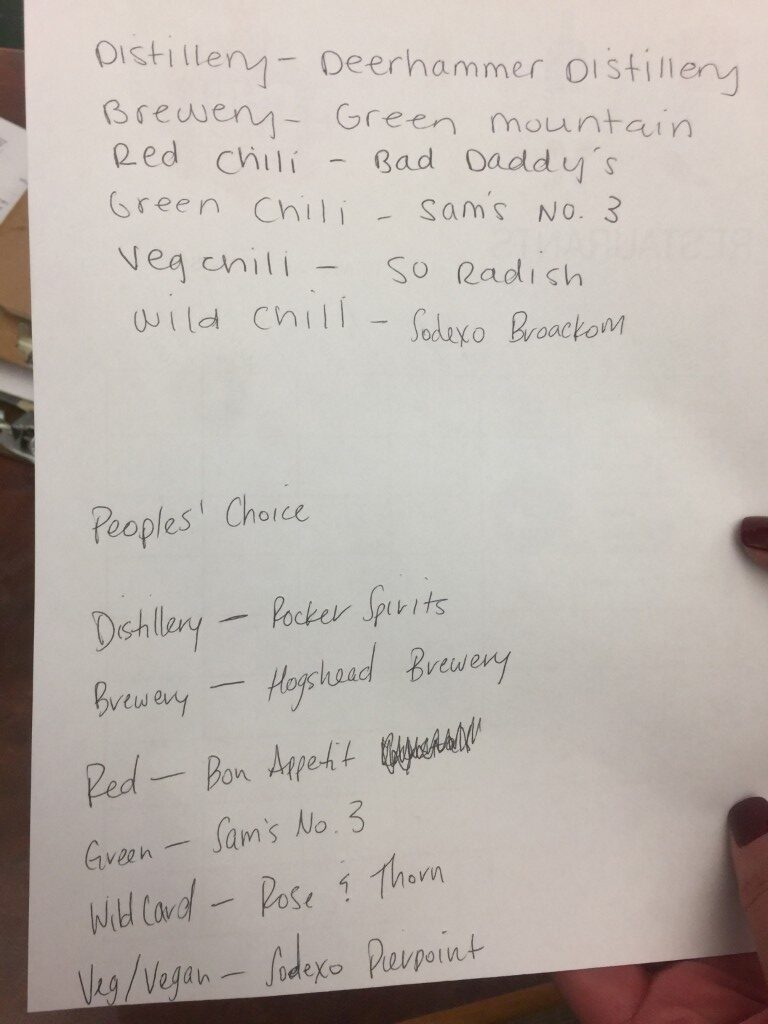 Distillery - Deerhammer Distillery
Brewery - Green Mountain
Red Chili - Bad Daddy's
Green Chili - Sam's No. 3
Veg chili - So Radish
Wild Chili - Sodexo Broackom
Peoples' Choice
Distillery - Rocker Spirits
Brewery - Hogshead Brewery
Red - Bon Appetit
Green - Sam's No. 3
Wild Card - Rose & Thorn
Veg/Vegan - Sodexo Pierpoint
RESTAURANTS